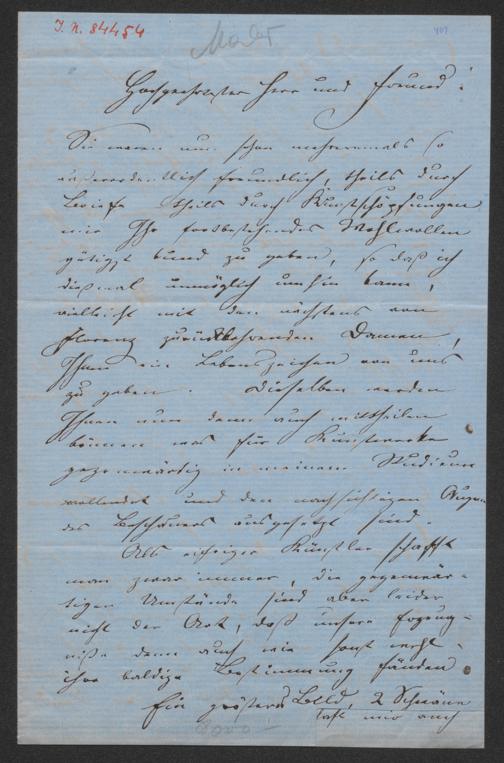 J. N. 84454
407
Maler
Hochgeehrtester Herr und Freund!
Sie waren nun schon mehreremals so
außerordentlich freundlich, theils durch
Briefe theils durch Kunstschöpfungen
mir Ihr fortbestehendes Wohlwollen
gütigst kund zu geben, so daß ich
dießmal unmöglich umhin kann,
vielleicht mit den nächstens von
Florenz zurückkehrenden Damen,
Ihnen ein Lebenszeichen von uns
zu geben. Dieselben werden
Ihnen nun dann auch mittheilen
können was für Kunstwerke
gegenwärtig in meinem Studium
vollendet und den nachsichtigen Augen
des Beschauers ausgesetzt sind.
Als eifriger Künstler schafft
man zwar immer, die gegenwär-
tigen Umstände sind aber leider
nicht der Art, daß unsere Erzeug-
niße denn auch wie sonst wohl
ihre baldige Bestimmung fänden.
Ein größeres Bild, 2 Schwäne
läßt mir auch